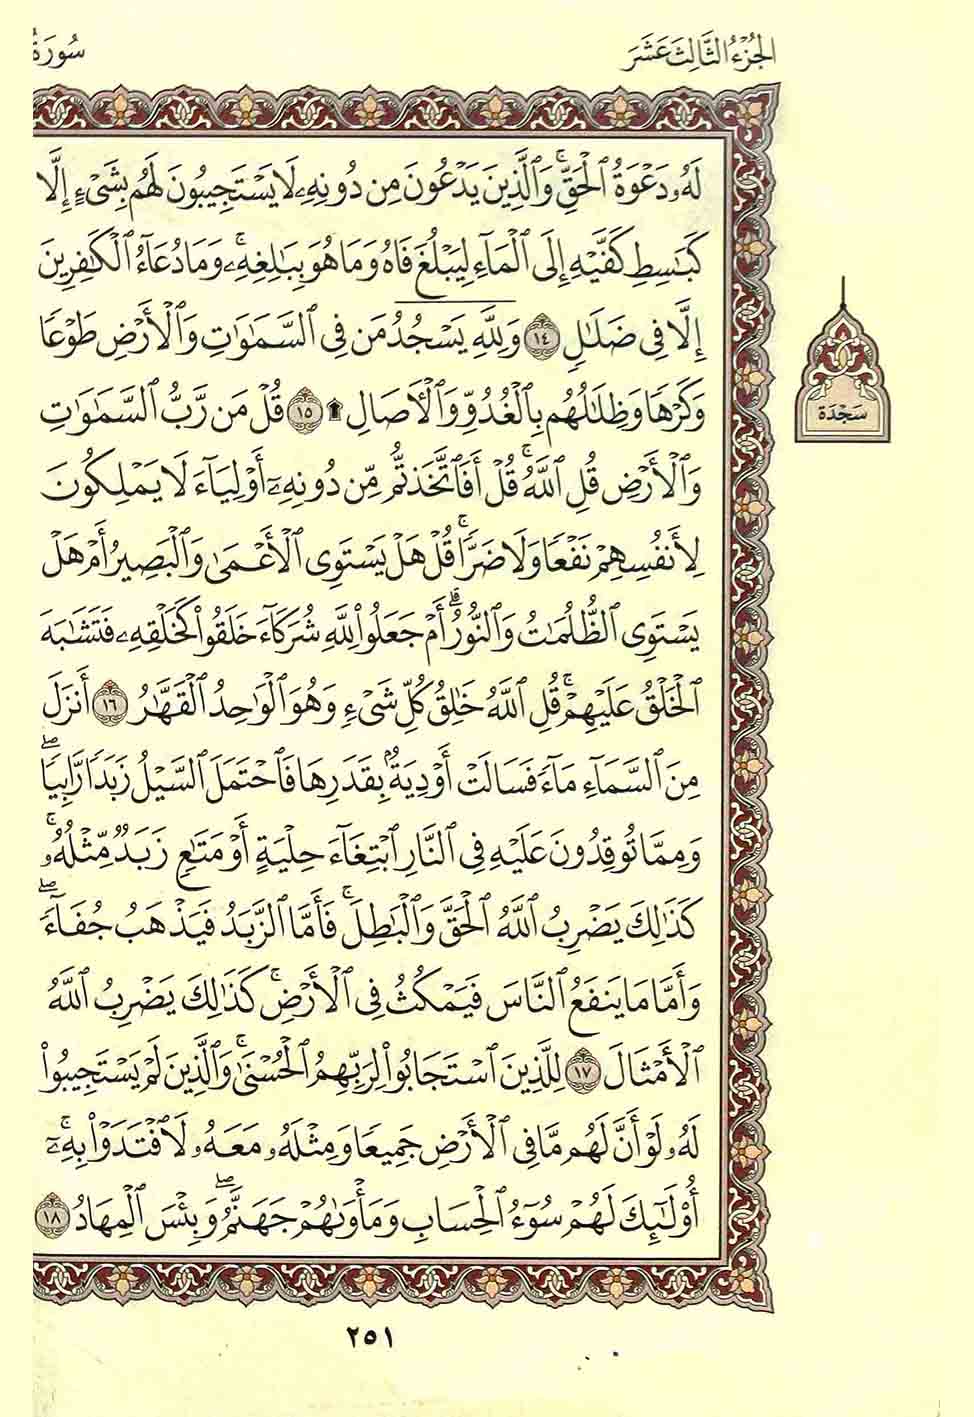 الجُزْءُ الثَّالِثَ عَشَرَ سُورَةُ
لَهُۥ دَعْوَةُ ٱلْحَقِّ ۚ وَٱلَّذِينَ يَدْعُونَ مِن دُونِهِۦ لَا يَسْتَجِيبُونَ لَهُم بِشَىْءٍ إِلَّا
كَبَٰسِطِ كَفَّيْهِ إِلَى ٱلْمَآءِ لِيَبْلُغَ فَاهُ وَمَا هُوَ بِبَٰلِغِهِۦ ۚ وَمَا دُعَآءُ ٱلْكَٰفِرِينَ
إِلَّا فِى ضَلَٰلٍ ١٤ وَلِلَّهِ يَسْجُدُ مَن فِى ٱلسَّمَٰوَٰتِ وَٱلْأَرْضِ طَوْعًا
وَكَرْهًا وَظِلَٰلُهُم بِٱلْغُدُوِّ وَٱلْءَاصَالِ ۩ ١٥ قُلْ مَن رَّبُّ ٱلسَّمَٰوَٰتِ
وَٱلْأَرْضِ قُلِ ٱللَّهُ ۚ قُلْ أَفَٱتَّخَذْتُم مِّن دُونِهِۦٓ أَوْلِيَآءَ لَا يَمْلِكُونَ
لِأَنفُسِهِمْ نَفْعًا وَلَا ضَرًّا ۚ قُلْ هَلْ يَسْتَوِى ٱلْأَعْمَىٰ وَٱلْبَصِيرُ أَمْ هَلْ
تَسْتَوِى ٱلظُّلُمَٰتُ وَٱلنُّورُ ۗ أَمْ جَعَلُوا۟ لِلَّهِ شُرَكَآءَ خَلَقُوا۟ كَخَلْقِهِۦ فَتَشَٰبَهَ
ٱلْخَلْقُ عَلَيْهِمْ ۚ قُلِ ٱللَّهُ خَٰلِقُ كُلِّ شَىْءٍ وَهُوَ ٱلْوَٰحِدُ ٱلْقَهَّٰرُ ١٦ أَنزَلَ
مِنَ ٱلسَّمَآءِ مَآءً فَسَالَتْ أَوْدِيَةٌۢ بِقَدَرِهَا فَٱحْتَمَلَ ٱلسَّيْلُ زَبَدًا رَّابِيًا ۖ
وَمِمَّا تُوقِدُونَ عَلَيْهِ فِى ٱلنَّارِ ٱبْتِغَآءَ حِلْيَةٍ أَوْ مَتَٰعٍ زَبَدٌ مِّثْلُهُۥ ۚ
كَذَٰلِكَ يَضْرِبُ ٱللَّهُ ٱلْحَقَّ وَٱلْبَٰطِلَ ۚ فَأَمَّا ٱلزَّبَدُ فَيَذْهَبُ جُفَآءً ۖ
وَأَمَّا مَا يَنفَعُ ٱلنَّاسَ فَيَمْكُثُ فِى ٱلْأَرْضِ ۚ كَذَٰلِكَ يَضْرِبُ ٱللَّهُ
ٱلْأَمْثَالَ ١٧ لِلَّذِينَ ٱسْتَجَابُوا۟ لِرَبِّهِمُ ٱلْحُسْنَىٰ ۚ وَٱلَّذِينَ لَمْ يَسْتَجِيبُوا۟
لَهُۥ لَوْ أَنَّ لَهُم مَّا فِى ٱلْأَرْضِ جَمِيعًا وَمِثْلَهُۥ مَعَهُۥ لَٱفْتَدَوْا۟ بِهِۦٓ ۚ
أُو۟لَٰٓئِكَ لَهُمْ سُوٓءُ ٱلْحِسَابِ وَمَأْوَىٰهُمْ جَهَنَّمُ ۖ وَبِئْسَ ٱلْمِهَادُ ١٨
سَجْدَة
٢٥١